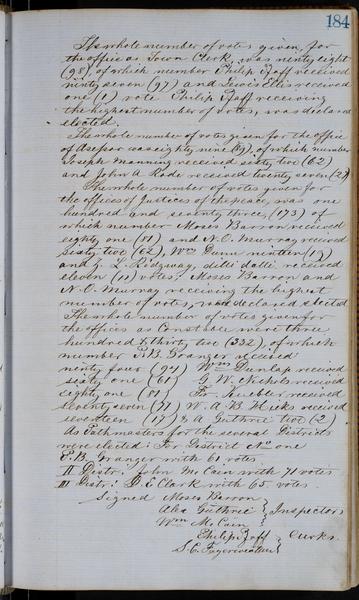 184
The whole number of votes given, for
the office as Town Clerk, was ninety eight
(98), of which number Philip Zoff received
ninety seven (97) and Lewis Ellis received
one (1) vote Philip Zoff receiving
the highest number of votes, was declared
elected.
The whole number of votes given for the office
of Assessor was eighty nine (89), of which number
Joseph Manning received sixty two (62)
and John A Rode received twenty seven (27)
The whole number of votes given for
the offices of Justices of the peace, was one
hundred and seventy three, (173) of
which number Moses Barron received
eighty one (81) and N.O. Murray received
sixty two (62), Wm Dunn nineteen (19)
and J. L. Ridgway, received
eleven (11) votes; Moses Barron and
N.O. Murray receiving the highest
number of votes, were declared elected
The whole number of votes given for
the offices as Constable were three
hundred & thirty two (332), of which
number E.B. Granger received
ninety four (94) Wm Dunlap received
sixty one (61) G. W. Nichols received
eighty one (81) Fr. Huebler received
seventy seven (77) W. A. B. Hicks received
seventeen (17) & A Guthrie two (2)
As Pathmaster for the several Districts
were elected: For District No one
E.B. Granger with 61 votes
II Distr. John McCain with 71 votes
III Distr: D.E. Clark with 65 votes.
Signed Moses Barron
Alex Guthrie } Inspectors
Wm McCain
Philip Zoff } Clerks.
S.C. Fayerweather